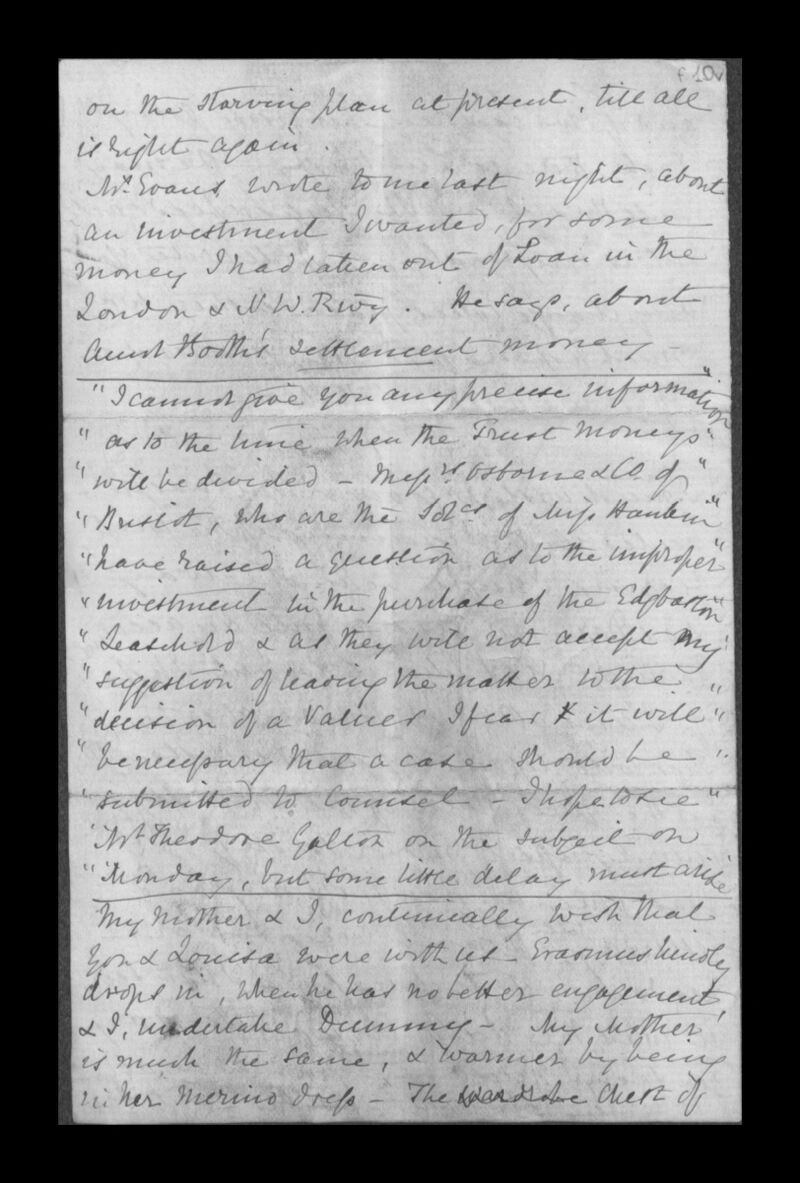 f 10v
on the starving plan at present, till all
is right again.
Mr. Evans wrote to me last night, about
an investment I wanted, for some
money I had taken out of Loan in the
London & N W. Rwy. He says, about
Aunt Booth's settlement money -
"I cannot give you any precise information"
" as to the time when the Trust Moneys "
" will be divided - Messrs. Osborne & Co. of "
" Bristol, who are the Solrs of Miss "
" have raised a question as to the improper "
" investment in the purchase of the Edgbaston "
" Leasehold & as they will not accept my "
" suggestion of leaving the matter to the "
" decision of a Valuer I fear it will "
" be necessary that a case should be "
" submitted to Counsel - I hope to see "
" Mr Theodore Galton on the subject on
" Monday, but some little delay must arise
My Mother & I, continually wish that
you & Louisa were with us - Erasmus kindly
drops in, when he has no better engagement,
& I, undertake Dummy - My Mother
is much the same, & warmer by being
in her Merino dress - The wardrobe Chest of